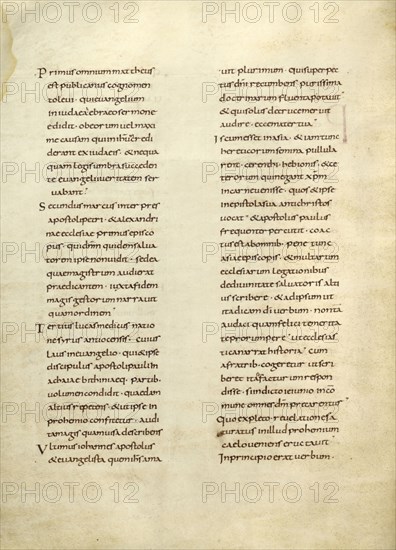 Primus omnium mattheus
est publicanus cognomen
to leui · qui euangelium
in iudaea hebraeo sermone
edidit · ob eorum uel maxi
me causam qui in ihm credi
derant ex iudaeis · & nequa
quam legis umbra succeden
te euangelii ueritatem ser
uabant ·
Secundus marcus inter pres
apostoli petri · & alexandri
nae ecclesiae primus episco
pus · qui dnm quidem salua
torem ipse non uidit · sed ea
quae magistrum audierat
praedicantem · iuxta fidem
magis gestorum narrauit
quam ordinem ·
Tertius lucas medicus natio
ne syrus antiocensis · cuius
laus in euangelio · qui & ipse
discipulus apostoli pauli in
achaiae bithiniaeq; partib·
uolumen condidit · quaedam
altius repetens · & ut ipse in
prohemio confitetur · audi
ta magis quam uisa describens
Ultimus iohannes apostolus
& euangelista quem ihs ama
uit plurimum · qui super pec
tus dni recumbens purissima
doctrinarum fluenta potauit
& qui solus de cruce meruit
audire · ecce mater tua ·
Is cum esset in asia · & iam tunc
hereticorum semina pullula
rent · cerinthi · hebionis · & ce
terorum qui negant xpm
in carne uenisse · quos & ipse
in epistola sua antichristos
uocat · & apostolus paulus
frequenter percutit · coac
tus est ab omnib· pene tunc
asiae episcopis · & multarum
ecclesiarum legationibus
de diuinitate saluatoris al
tius scribere · & ad ipsum ut
ita dicam dei uerbum · non ta
audaci quam felici temerita
te prorumpere · ut ecclesias
tica narrat historia · cum
a fratrib· cogeretur ut scri
beret · ita facturum respon
disse · si indicto ieiunio in com
mune omnes dnm precarentur
Quo expleto · reuelatione sa
turatus in illud prohemium
caelo ueniens eructauit
In principio erat uerbum ·
PHOTO 12